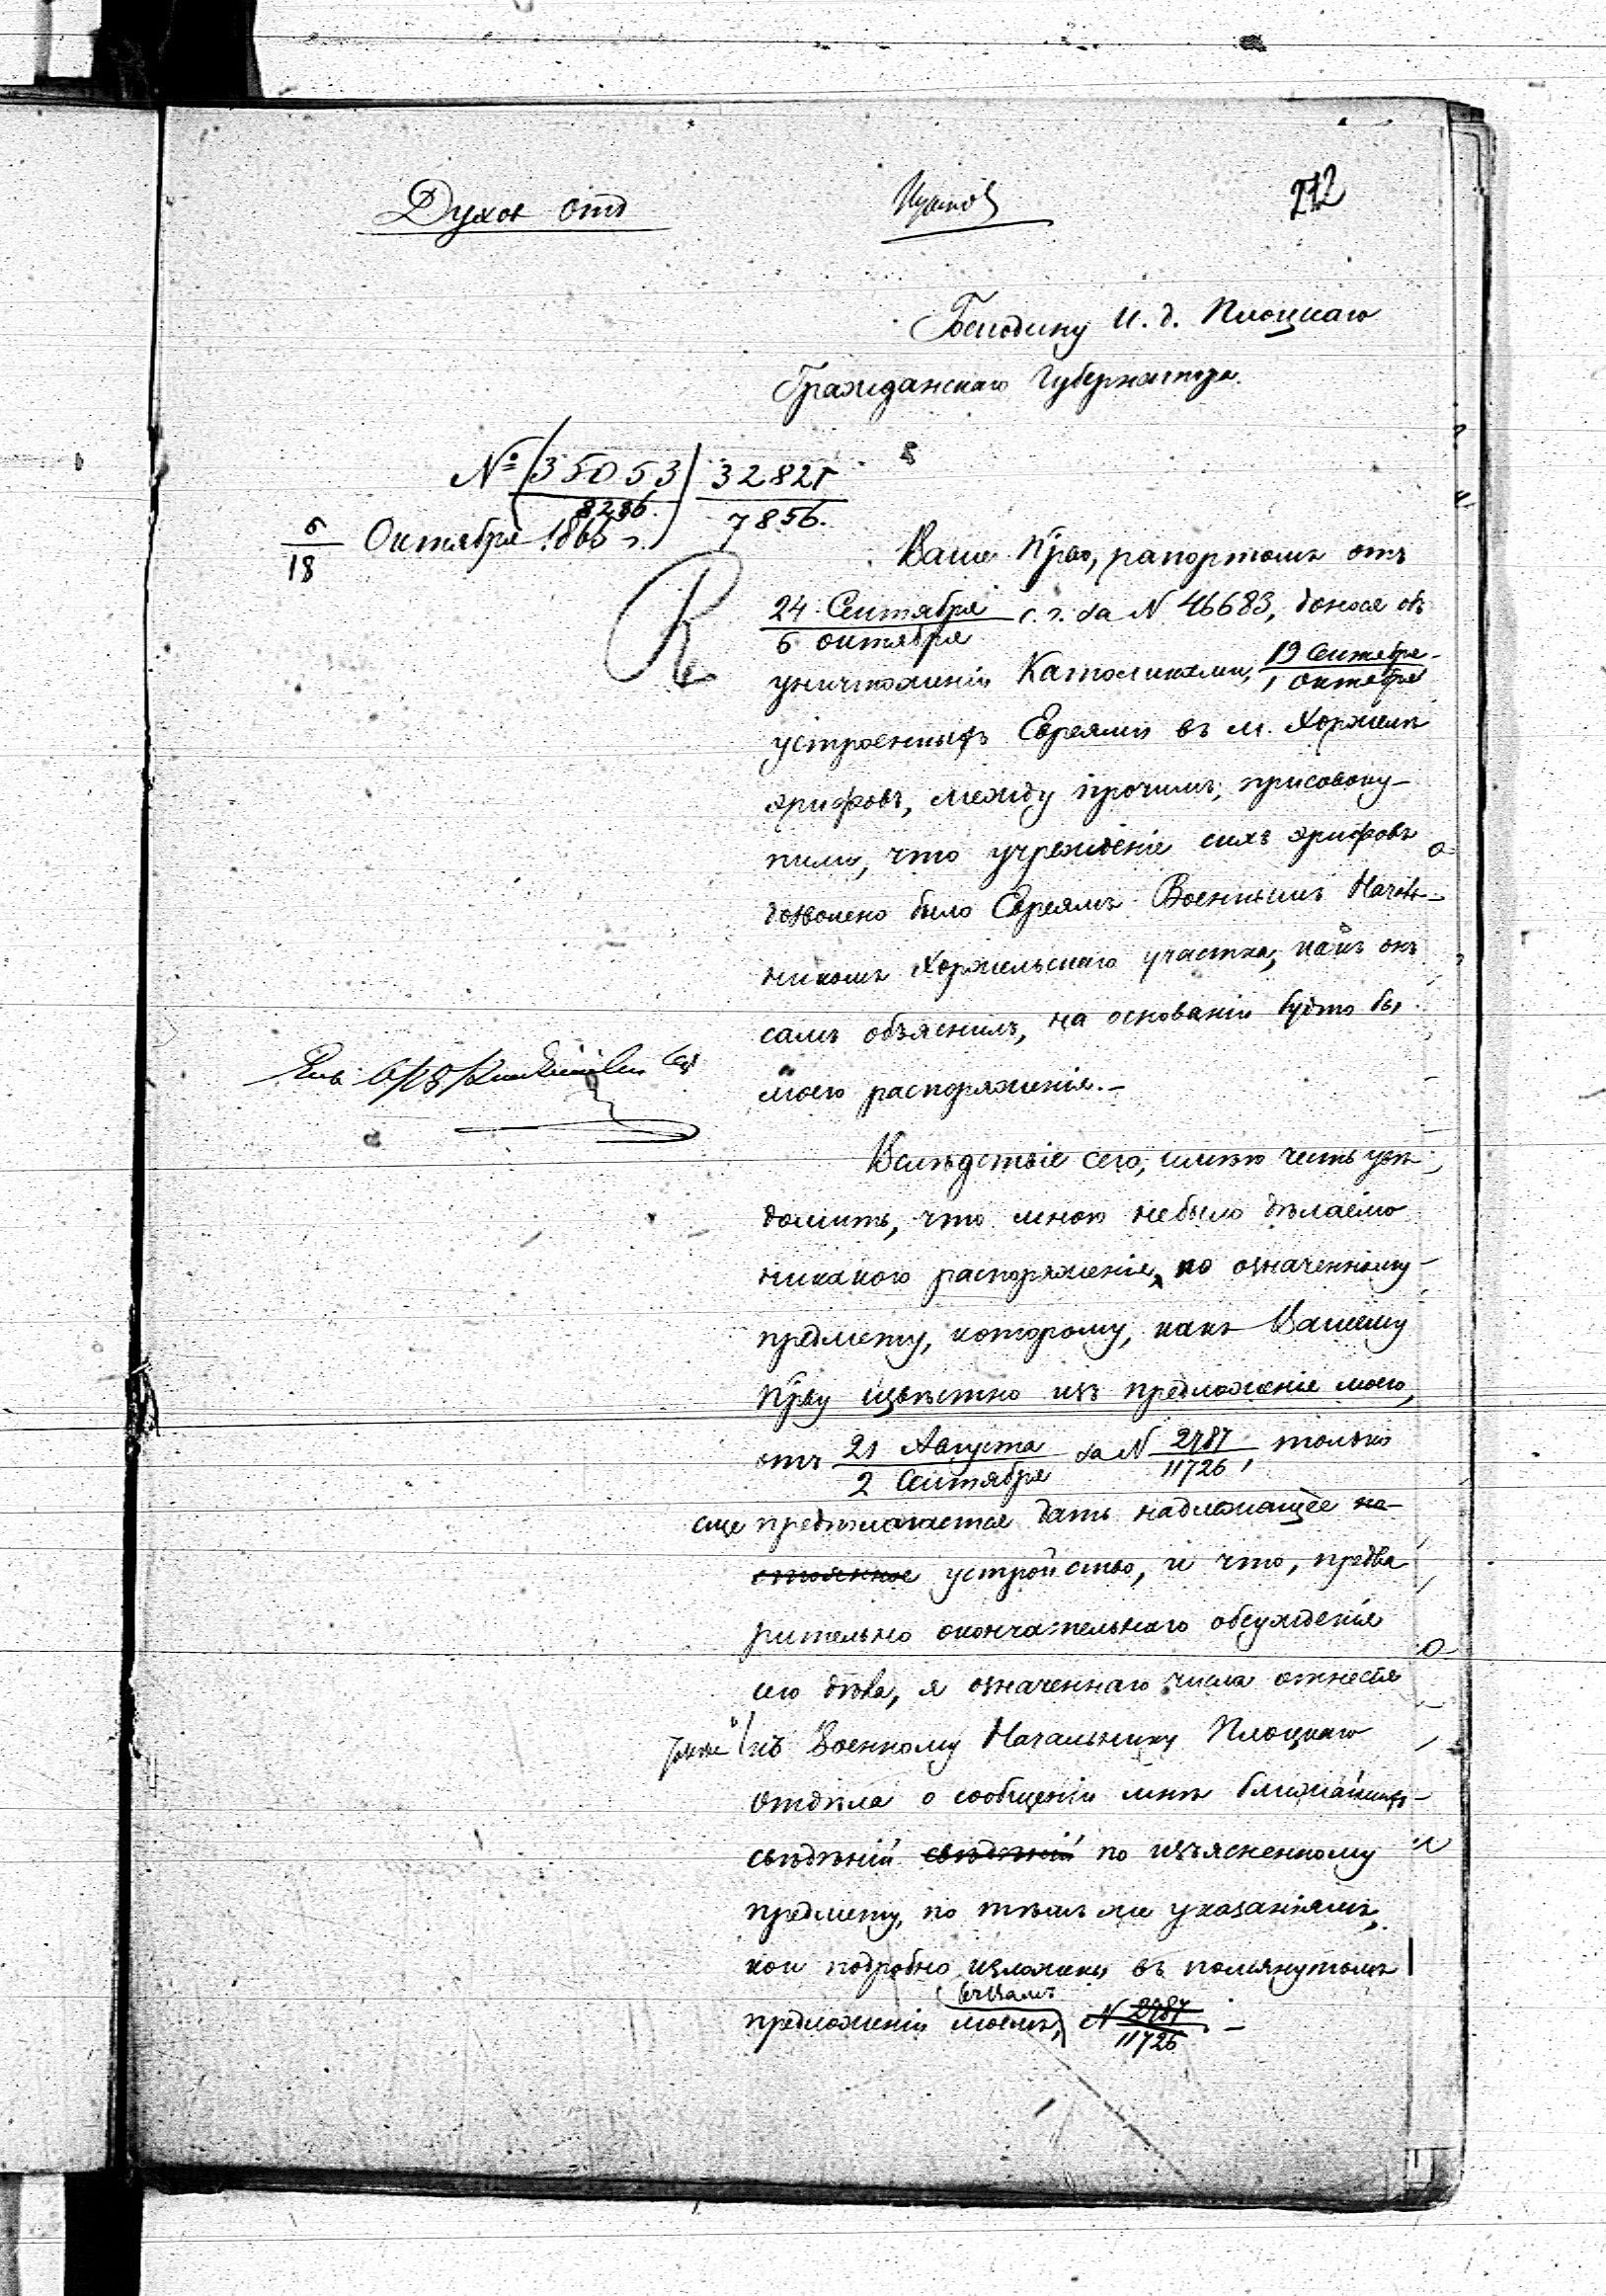 Духов отд
272
Господину И. д. Плоцкаго
Гражданскаго Губернатора.
№ (35053/8286.) 32821/7856.
6/18 Октября 1865 г.
Ваше Прво, рапортомъ отъ
24 Сентября/6 октября с. г. за N 46683, донося объ
уничтоженіи Католиками, 19 Сентября/1 Октября
устроенныхъ Евреями въ м. Хоржелѣ
эрифовъ, между прочимъ, присовоку-
пили, что учрежденіе сихъ эрифовъ
дозволено было Евреямъ Военнымъ Началь-
никомъ Хоржельскаго участка, какъ онъ
самъ объяснилъ, на основаніи будто бы
моего распоряженія.-
Вслѣдствіе сего, имѣю честь увѣ-
домить, что мною небыло дѣлаемо
никакого распоряженія, по означенному
предмету, которому, какъ Вашему
Прву извѣстно изъ предложенія моего,
отъ 21 Августа/2 Сентября за N 2987/11726, только
еще предполагается дать надлежащее на-
стоянное устройство, и что, предва
рительно окончательнаго обсужденія
сего дѣла, я означеннаго числа отнесся
къ Военному Начальнику Плоцкаго
Отдѣла о сообщеніи мнѣ ближайшихъ
свѣдѣній свѣдѣній по изъясненному
предмету, по тѣмъ же указаніямъ,
кои подробно изложены въ помянутомъ
предложеніи моемъ, N 2987/11726. -